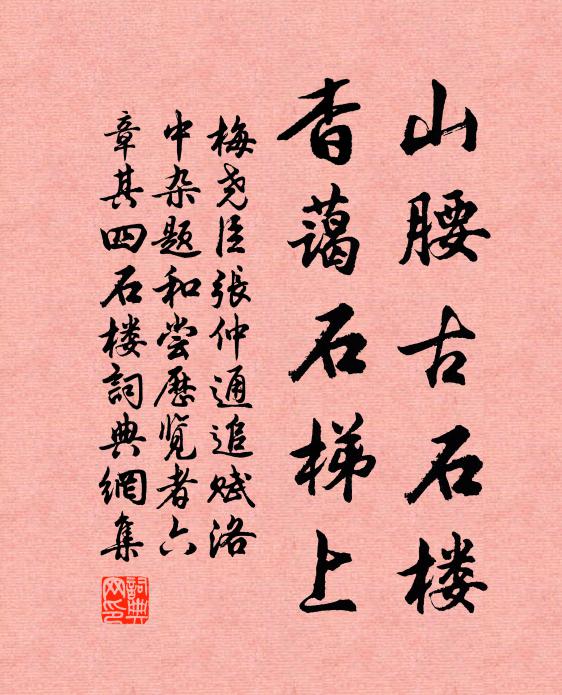 山腰古石楼
杳藹石梯上
梅尧臣張仲通追赋洛
中杂题和尝歷览者六
章其四石楼詞典網集
詞典网印